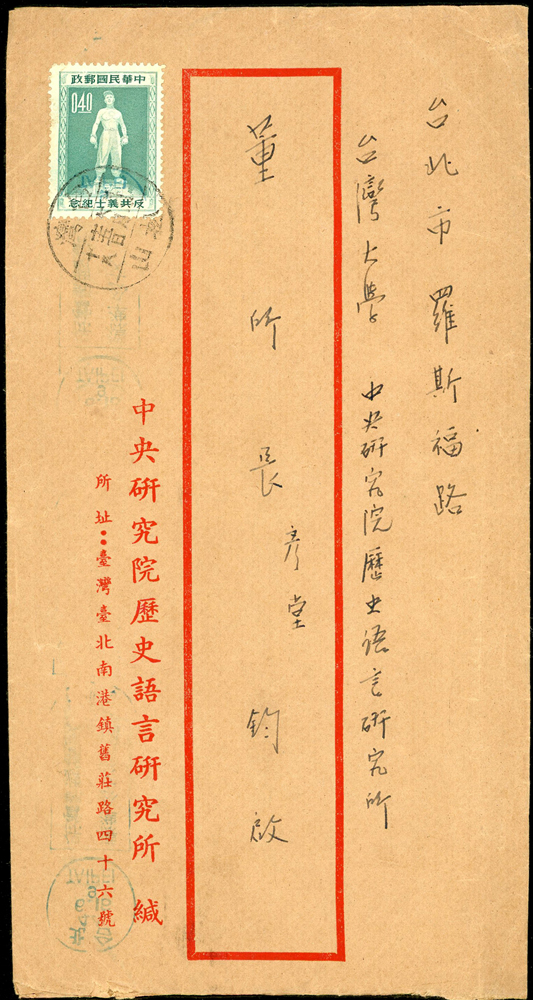 台北市羅斯福路
台灣大學 中央研究院歷史語言研究所
董所長彥堂鈞啟
中央研究院歷史語言研究所 緘
所址：臺灣臺北南港鎮舊莊路四十六號
中華民國郵政
040
反共義士紀念